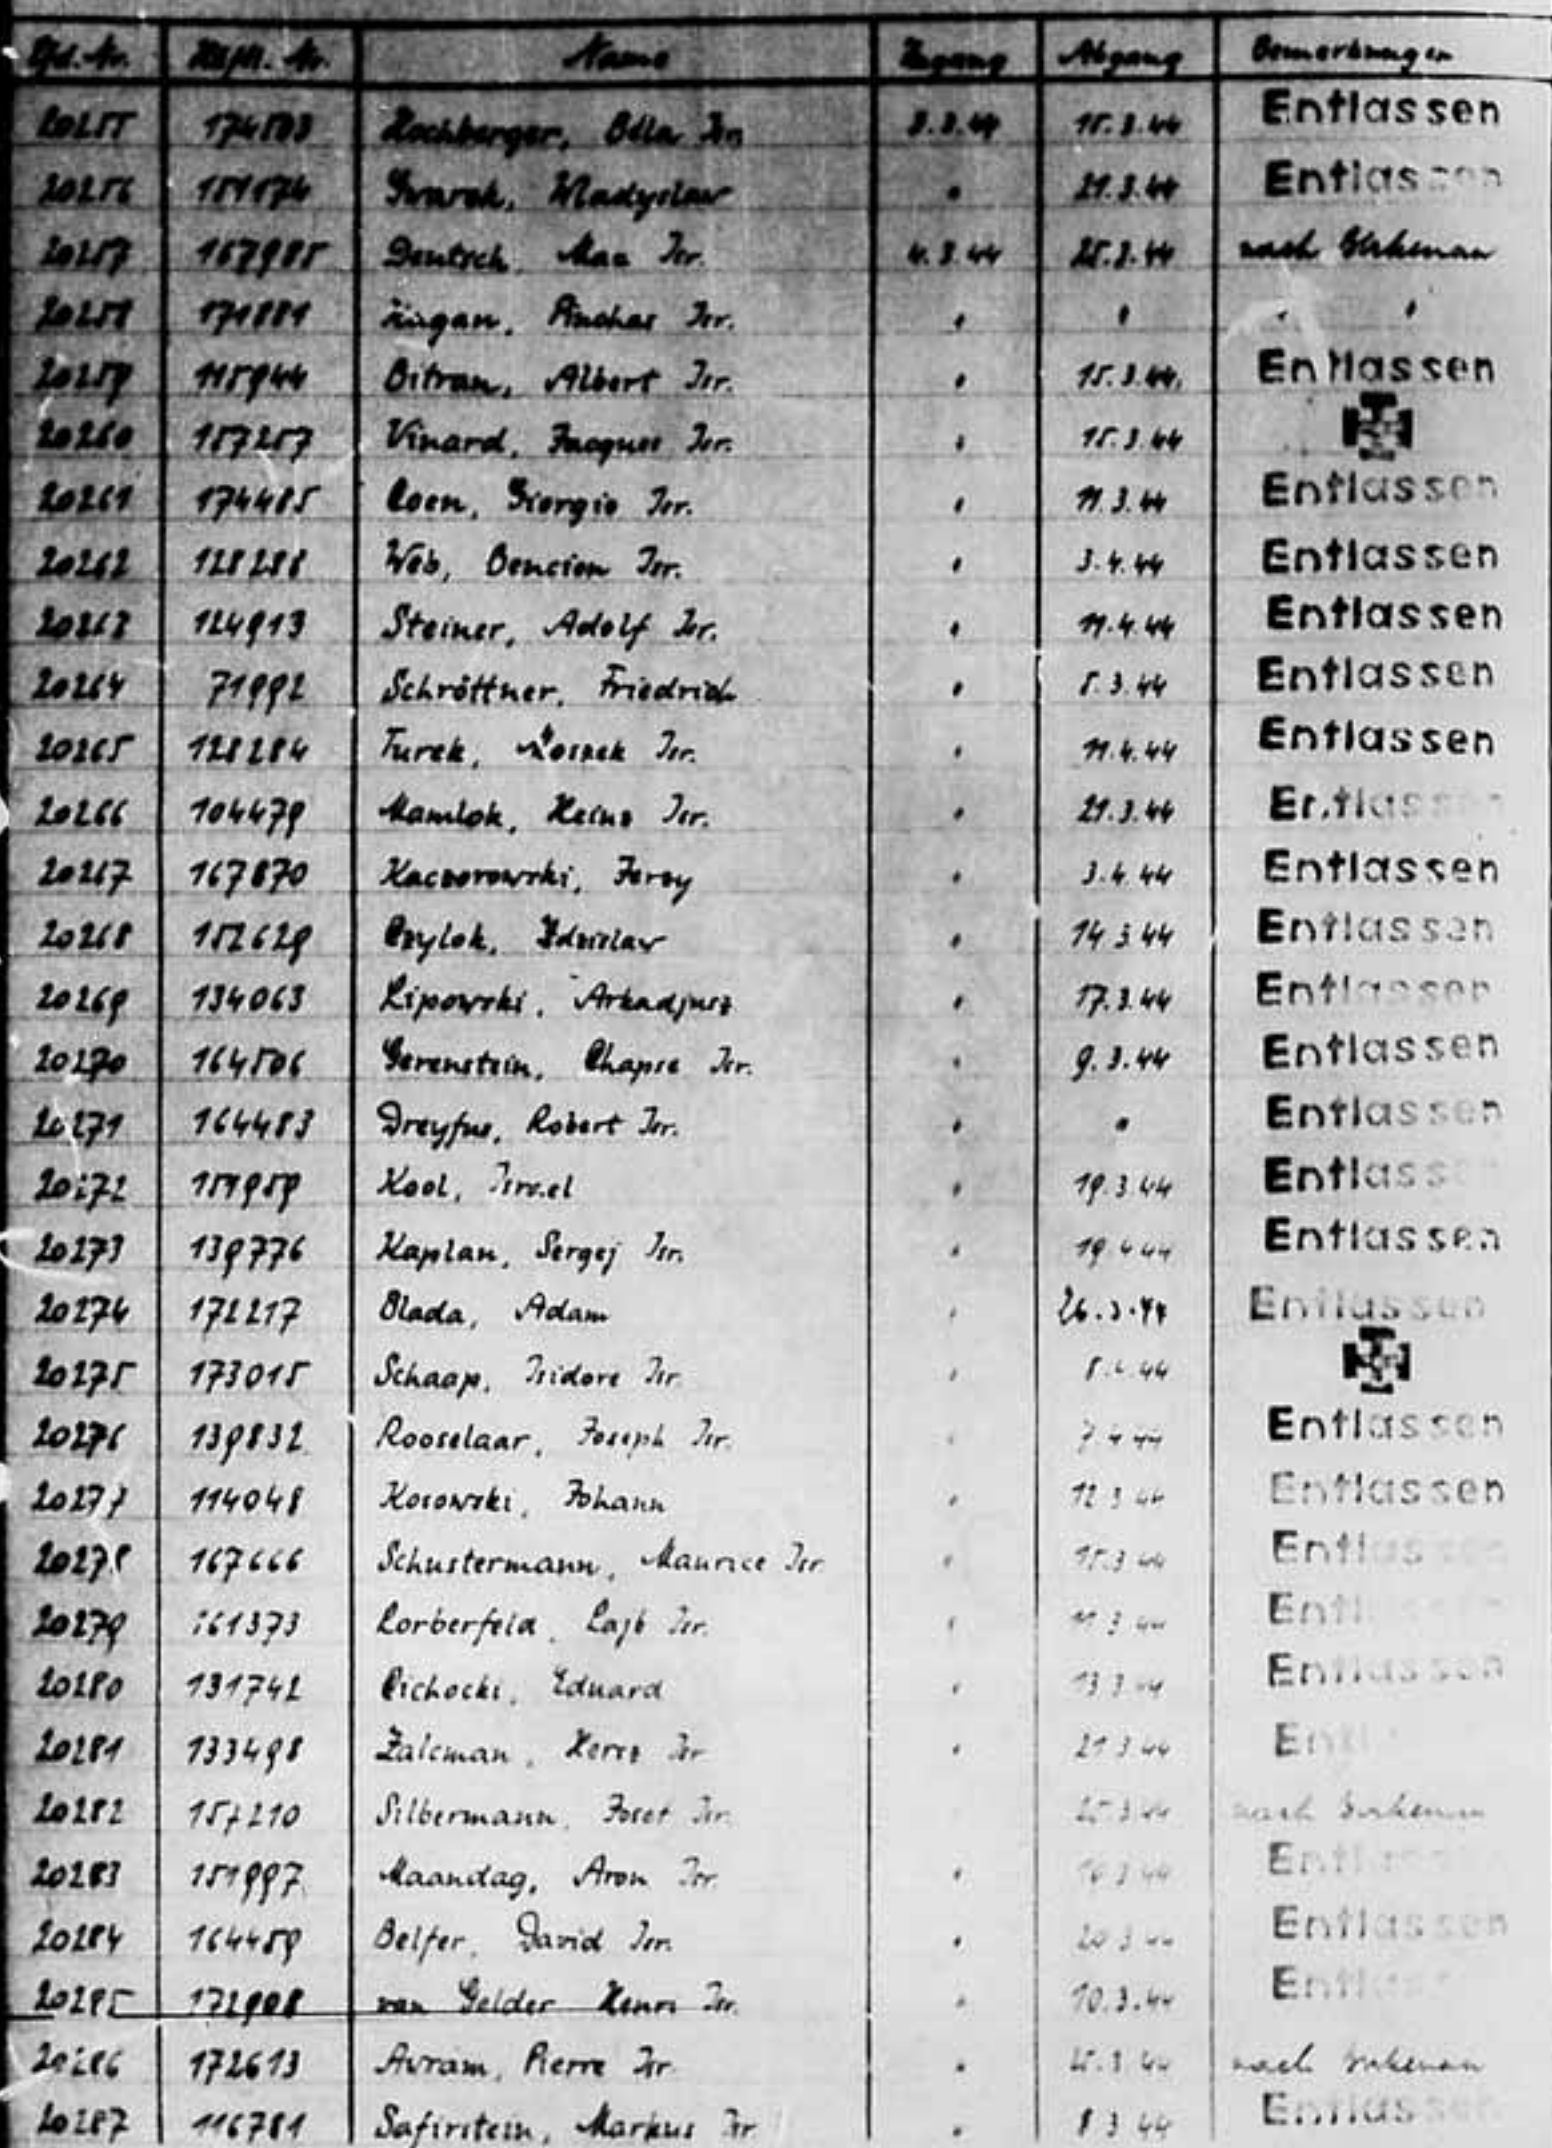 Lfd. Nr. Häftl. Nr. Name Zugang Abgang Bemerkungen
20255 174503 Hochberger, Bela Isr. 3.3.44 15.3.44 Entlassen
20256 151174 Wladyslaw " 21.3.44 Entlassen
20257 167985 Deutsch, Max Isr. 4.3.44 25.3.44 nach Birkenau
20258 171881 Pinchas Isr. " " " "
20259 115944 Bitran, Albert Isr. " 15.3.44. Entlassen
20260 157257 Vinard, Jacques Isr. " 15.3.44
20261 174485 Coen, Giorgio Isr. " 11.3.44 Entlassen
20262 128288 Web, Bencion Isr. " 3.4.44 Entlassen
20263 124913 Steiner, Adolf Isr. " 11.4.44 Entlassen
20264 71992 Schröttner, Friedrich " 5.3.44 Entlassen
20265 128284 Turek, Isr. " 11.4.44 Entlassen
20266 104479 Mamlok, Heinz Isr. " 21.3.44 Entlassen
20267 167870 Kaczorowski, Jerzy " 3.4.44 Entlassen
20268 152629 Czylok, Zdzislaw " 14.3.44 Entlassen
20269 134063 Lipowski, Arkadjusz " 17.3.44 Entlassen
20270 164506 Gerenstein, Chapse Isr. " 9.3.44 Entlassen
20271 164483 Dreyfus, Robert Isr. " " Entlassen
20272 151959 Kool, Israel " 19.3.44 Entlassen
20273 139776 Kaplan, Sergej Isr. " 19.4.44 Entlassen
20274 172217 Blada, Adam " 26.3.44 Entlassen
20275 173015 Schaap, Isidore Isr. "
20276 139832 Rooselaar, Joseph Isr. " 7.4.44 Entlassen
20277 114048 Kosowski, Johann " 12.3.44 Entlassen
20278 167666 Schustermann, Maurice Isr. " 15.3.44 Entlassen
20279 161373 Lorberfeld, Lajb Isr. " 11.3.44 Entlassen
20280 131742 Cichocki, Eduard " 13.3.44 Entlassen
20281 133498 Zalcman, Hersz Isr. " 21.3.44 Entl
20282 157210 Silbermann, Josef Isr. 25.3.44 nach Birkenau
20283 151997 Maandag, Aron Isr. " Entlassen
20284 164459 Belfer, David Isr. " 20.3.44 Entlassen
20285 172908 van Gelder Henri Isr. " 10.3.44 Entlassen
20286 172613 Avram, Pierre Isr. " 25.3.44 nach Birkenau
20287 116781 Safirstein, Markus Isr. " 8.3.44 Entlassen